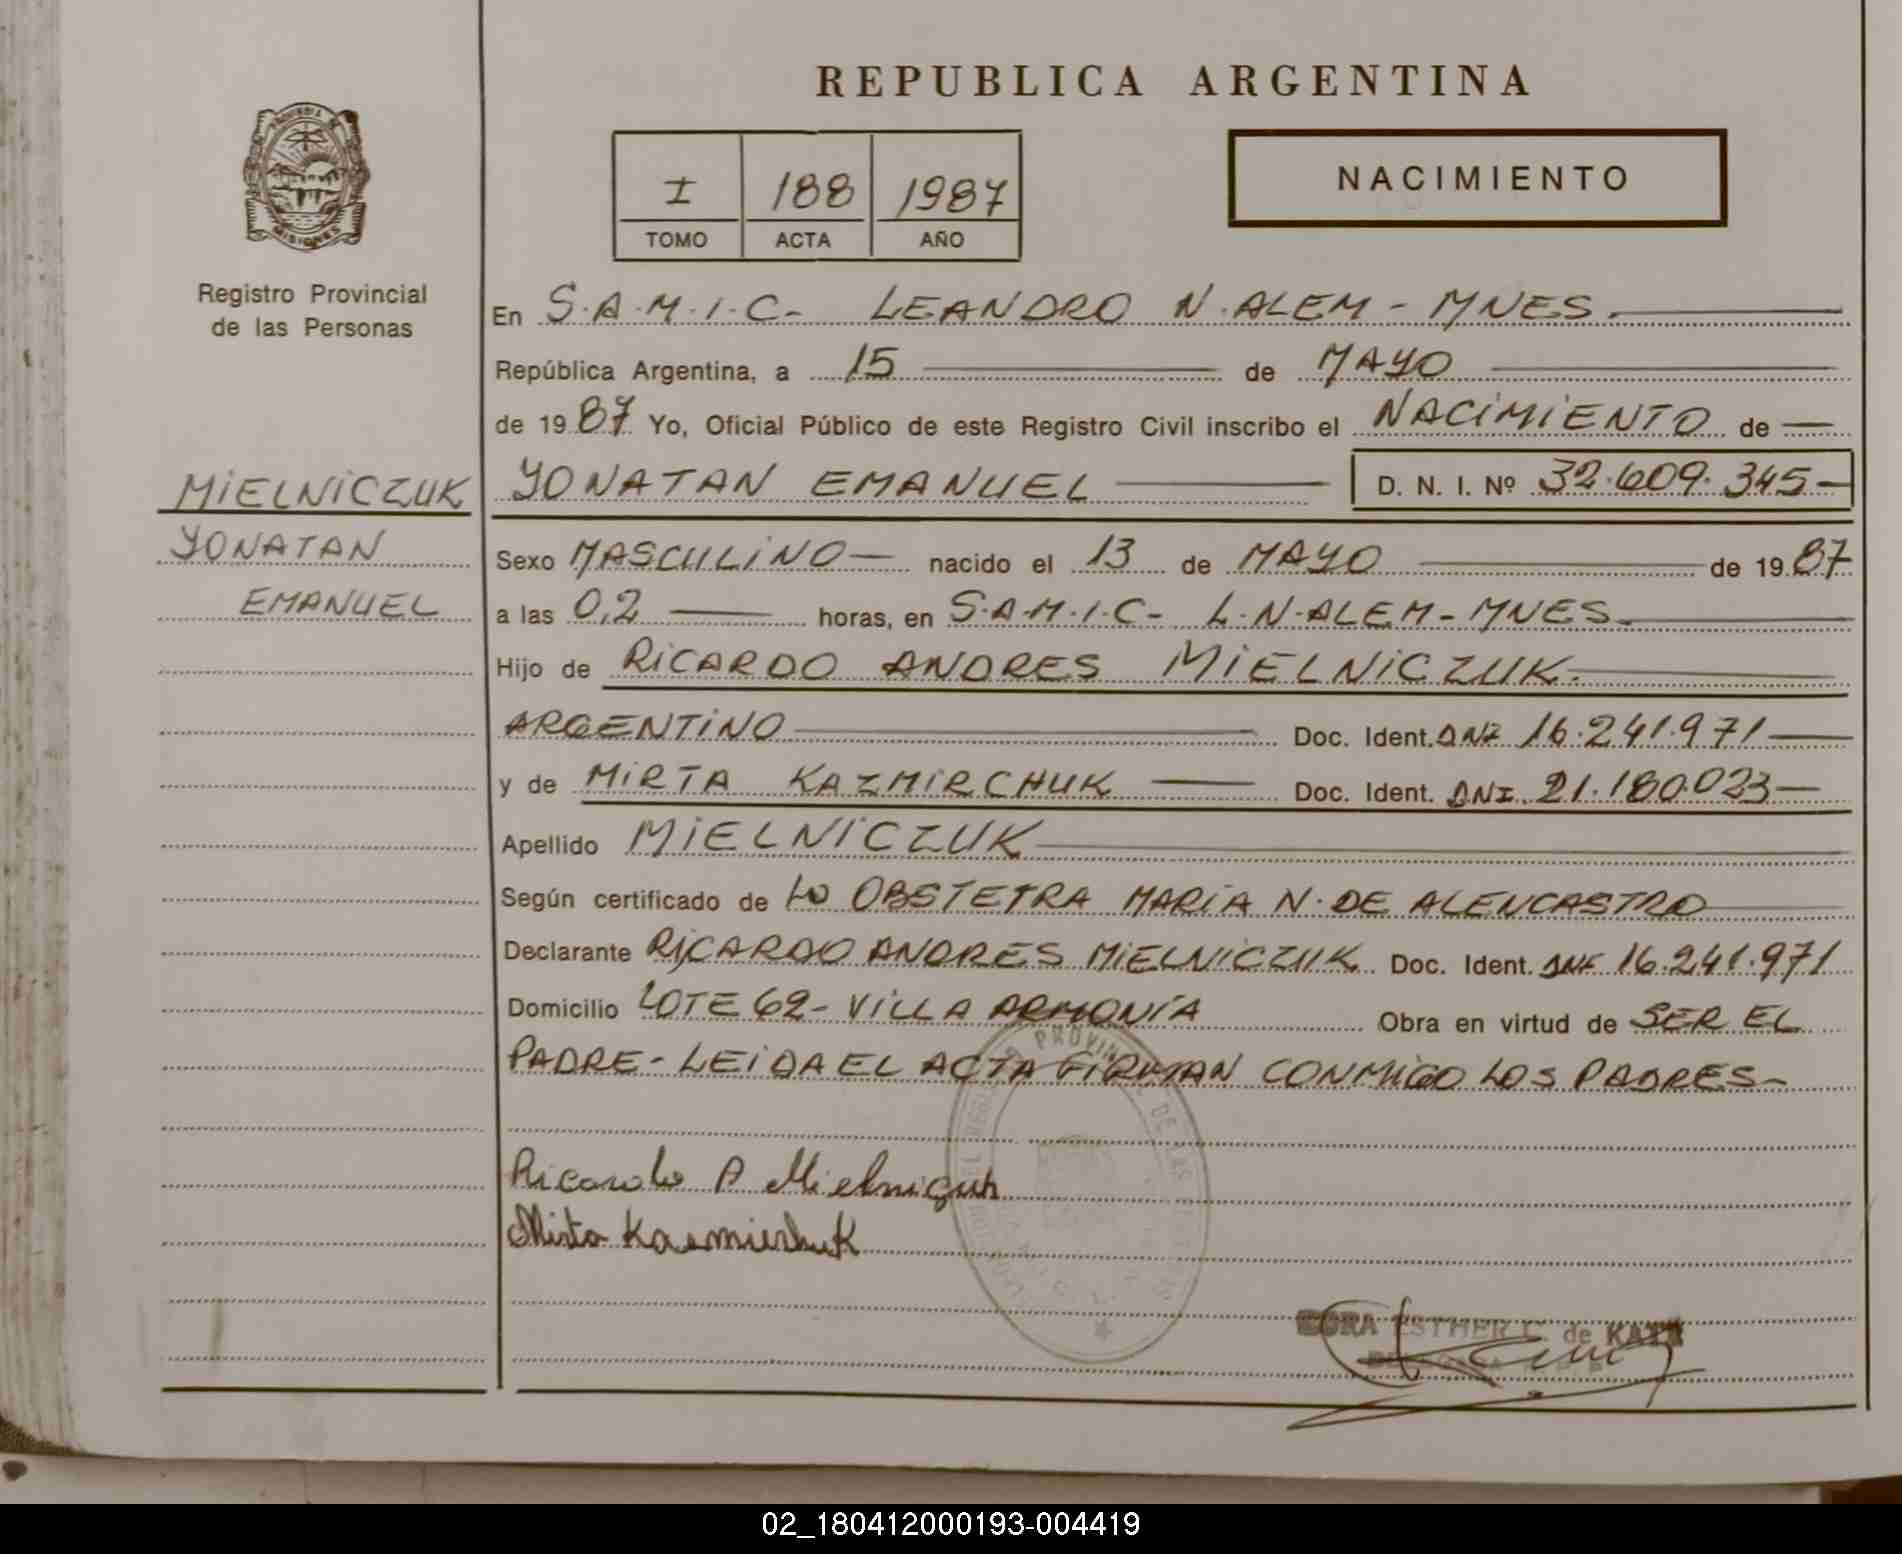 REPUBLICA ARGENTINA
PROVINCIA DE
MISIONES
Registro Provincial
de las Personas
I 188 1987
TOMO ACTA AÑO
NACIMIENTO
En S.A.M.I.C- LEANDRO N. ALEM - MNES.
República Argentina, a 15 de MAYO
de 1987 Yo, Oficial Público de este Registro Civil inscribo el NACIMIENTO de
MIELNICZUK
YONATAN
EMANUEL
YONATAN EMANUEL D. N. I. Nº 32.609.345-
Sexo MASCULINO nacido el 13 de MAYO de 1987
a las 0,2 horas, en S.A.M.I.C- L.N.ALEM - MNES.
Hijo de RICARDO ANDRES MIELNICZUK.
ARGENTINO Doc. Ident. DNI 16.241.971
y de MIRTA KAZMIRCHUK Doc. Ident. DNI 21.180.023
Apellido MIELNICZUK
Según certificado de LO OBSTETRA MARIA N. DE ALENCASTRO
Declarante RICARDO ANDRES MIELNICZUK Doc. Ident. DNI 16.241.971
Domicilio LOTE 62- VILLA ARMONÍA Obra en virtud de SER EL
PADRE - LEIDA EL ACTA FIRMAN CONMIGO LOS PADRES-
Ricardo A Mielniczuk
Mirta Kazmirchuk
ESTHER C. de KATZ
02_180412000193-004419